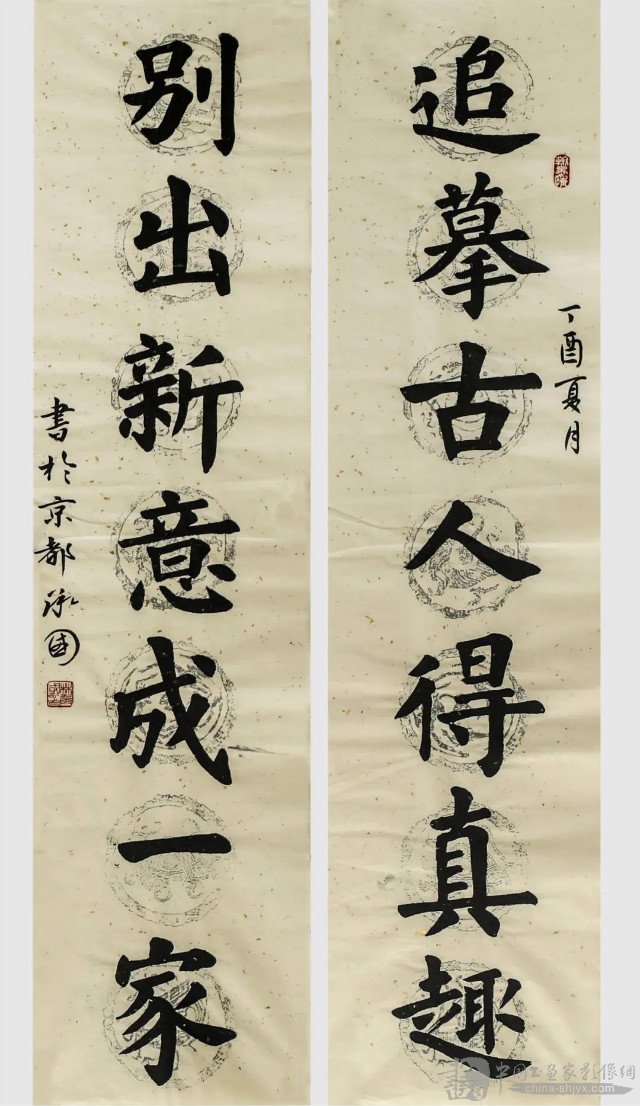 追摹古人得真趣
丁酉夏月
别出新意成一家
書於京都承国
china-shjyx.com